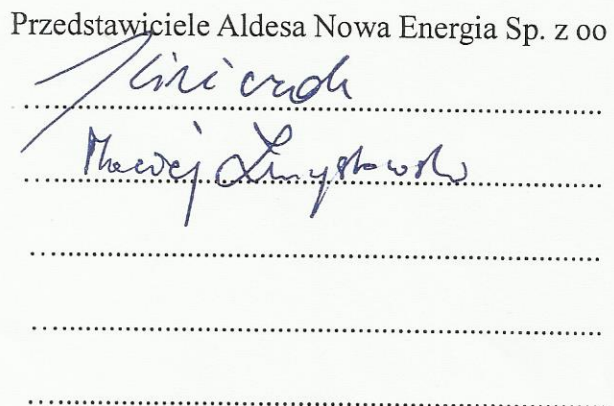 Przedstawiciele Aldesa Nowa Energia Sp. z oo
Maciej